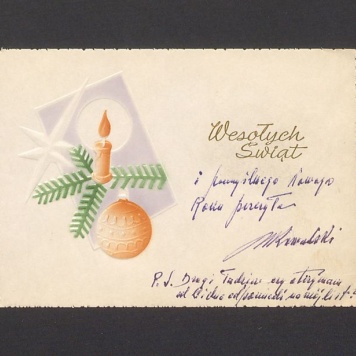 Wesołych
Świąt
i pomyślnego Nowego
Roku przesyła
MKowalski
P.S. Drogi Tadeju czy otrzymam
od Ciebie odpowiedź na mój list?